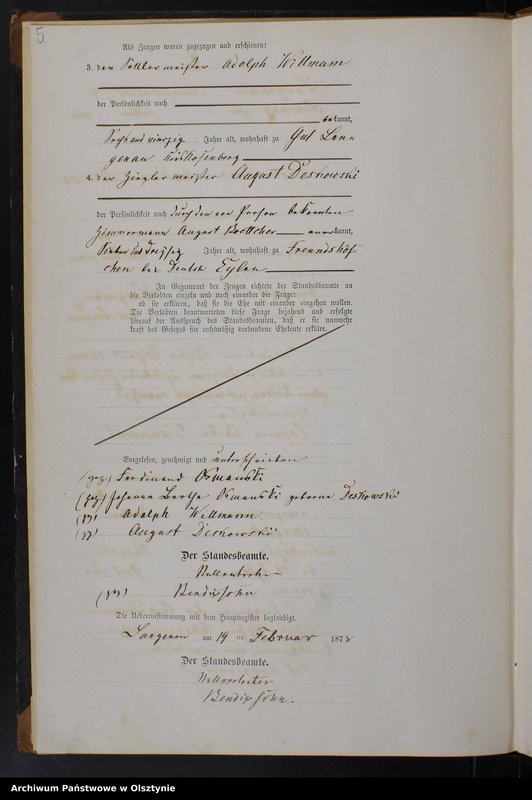 5
Als Zeugen waren zugezogen und erschienen:
3. der Sattlermeister Adolph Willmann
der Persönlichkeit nach
bekannt,
Sechs und vierzig Jahre alt, wohnhaft zu Gut Lan-
genau Kreis Rosenberg
4. der Zieglermeister August Deskowski
der Persönlichkeit nach durch den von Person bekannten
Zimmermann August Boettcher anerkannt,
Sieben und dreißig Jahre alt, wohnhaft zu Freundshöf-
chen bei Deutsch Eylau
In Gegenwart der Zeugen richtete der Standesbeamte an
die Verlobten einzeln und nach einander die Frage:
ob sie erklären, daß sie die Ehe mit einander eingehen wollen.
Die Verlobten beantworteten diese Frage bejahend und erfolgte
hierauf der Ausspruch des Standesbeamten, daß er sie nunmehr
kraft des Gesetzes für rechtmäßig verbundene Eheleute erkläre.
Vorgelesen, genehmigt und unterschrieben
(gez) Ferdinand Osmanski
(gez) Johanna Bertha Osmanski geborne Deskowski
(gz) Adolph Willmann
(gz) August Deskowski
Der Standesbeamte.
(gez) Bendixsohn
Die Uebereinstimmung mit dem Hauptregister beglaubigt.
Langenau am 19 ten Februar 1878
Der Standesbeamte.
Bendixsohn.
Archiwum Państwowe w Olsztynie